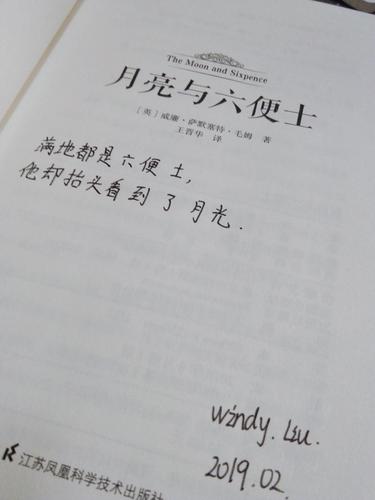 The Moon and Sixpence
月亮与六便士
[英] 威廉·萨默塞特·毛姆 著
王晋华 译
满地都是六便士,
他却抬头看到了月光.
Windy. Liu.
2019.02
江苏凤凰科学技术出版社